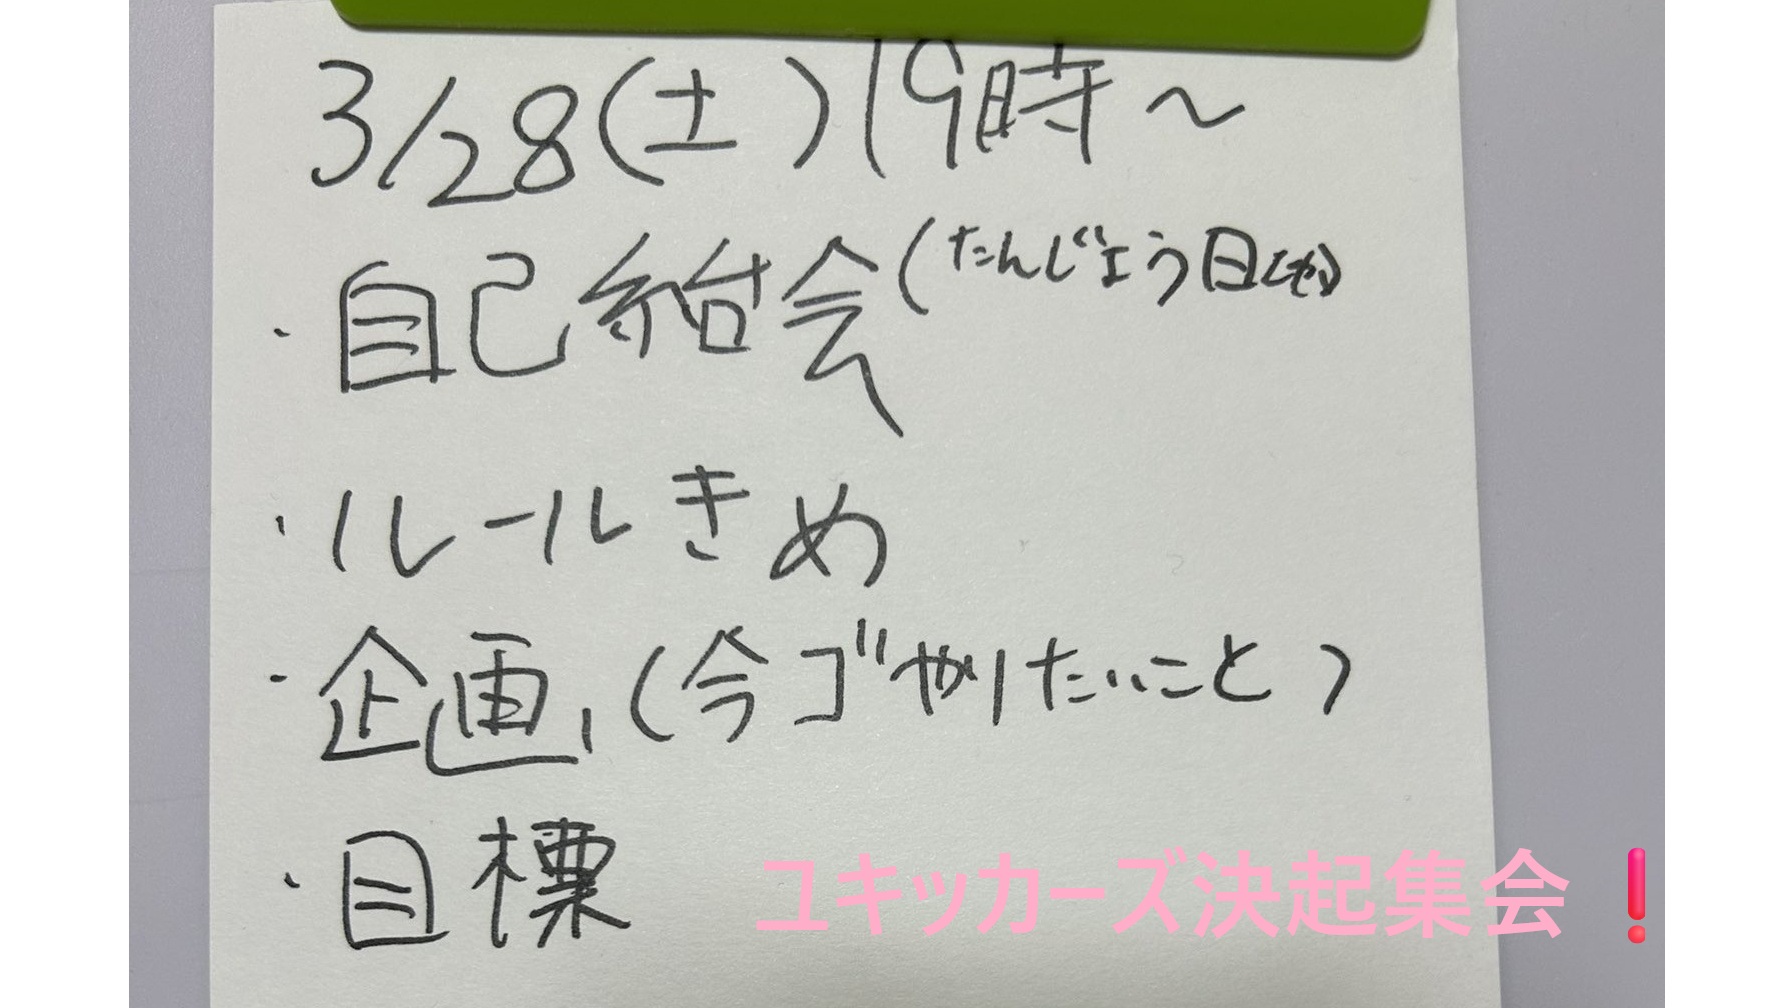 3/28(土)19時〜
・自己紹会(たんじょう日とか)
・ルールきめ
・企画,(今ゴやりたいこと)
・目標
ユキッカーズ決起集会❗